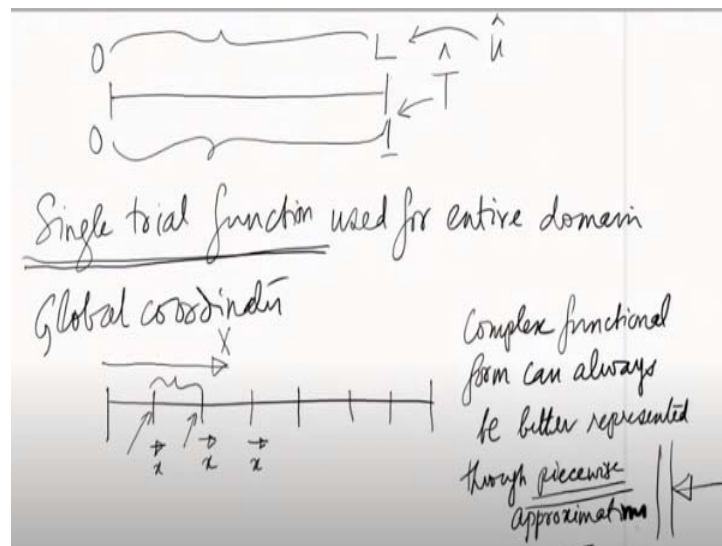 0 L û
T̂
0 1
Single trial function used for entire domain
Global coordinates
X
x x x
Complex functional
form can always
be better represented
through piecewise
approximations